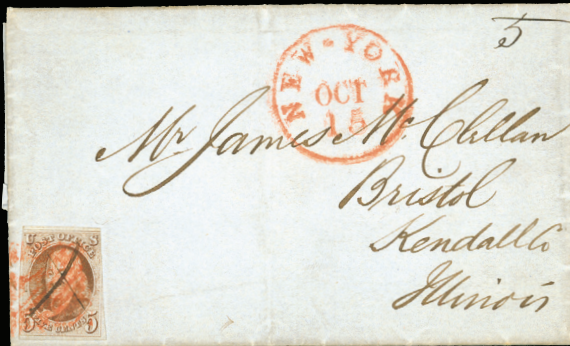 5
NEW·YORK
OCT
15
Mr James McClellan
Bristol
Kendall Co
Illinois
U S
POST OFFICE
FIVE CENTS
5 5